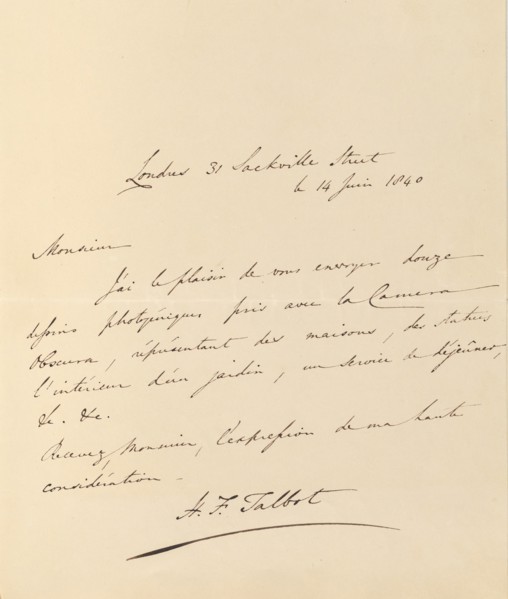 Londres 31 Sackville Street
le 14 Juin 1840
Monsieur
J'ai le plaisir de vous envoyer douze
dessins photogéniques pris avec la Camera
Obscura, réprésentant des maisons, des statues
l'intérieur d'un jardin, un service de déjeûner,
&c. &c.
Recevez, Monsieur, l'expression de ma haute
considération –
H. F. Talbot